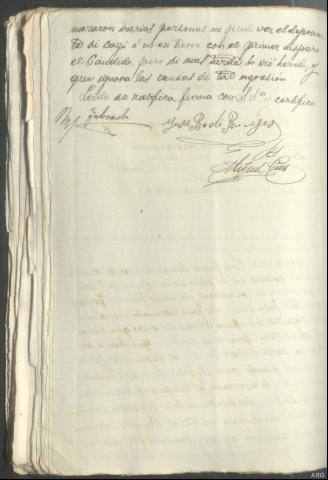 maron varias personas no pudo ver el depone
to si cayó ó no en tierra con el primer disparo
el Cándido, pero si mas tarde lo vió herido, y
que ignora las causas de tal agresión.
Leida se ratifica, firma con S. Sª y certifico
José
Miguel
ARG